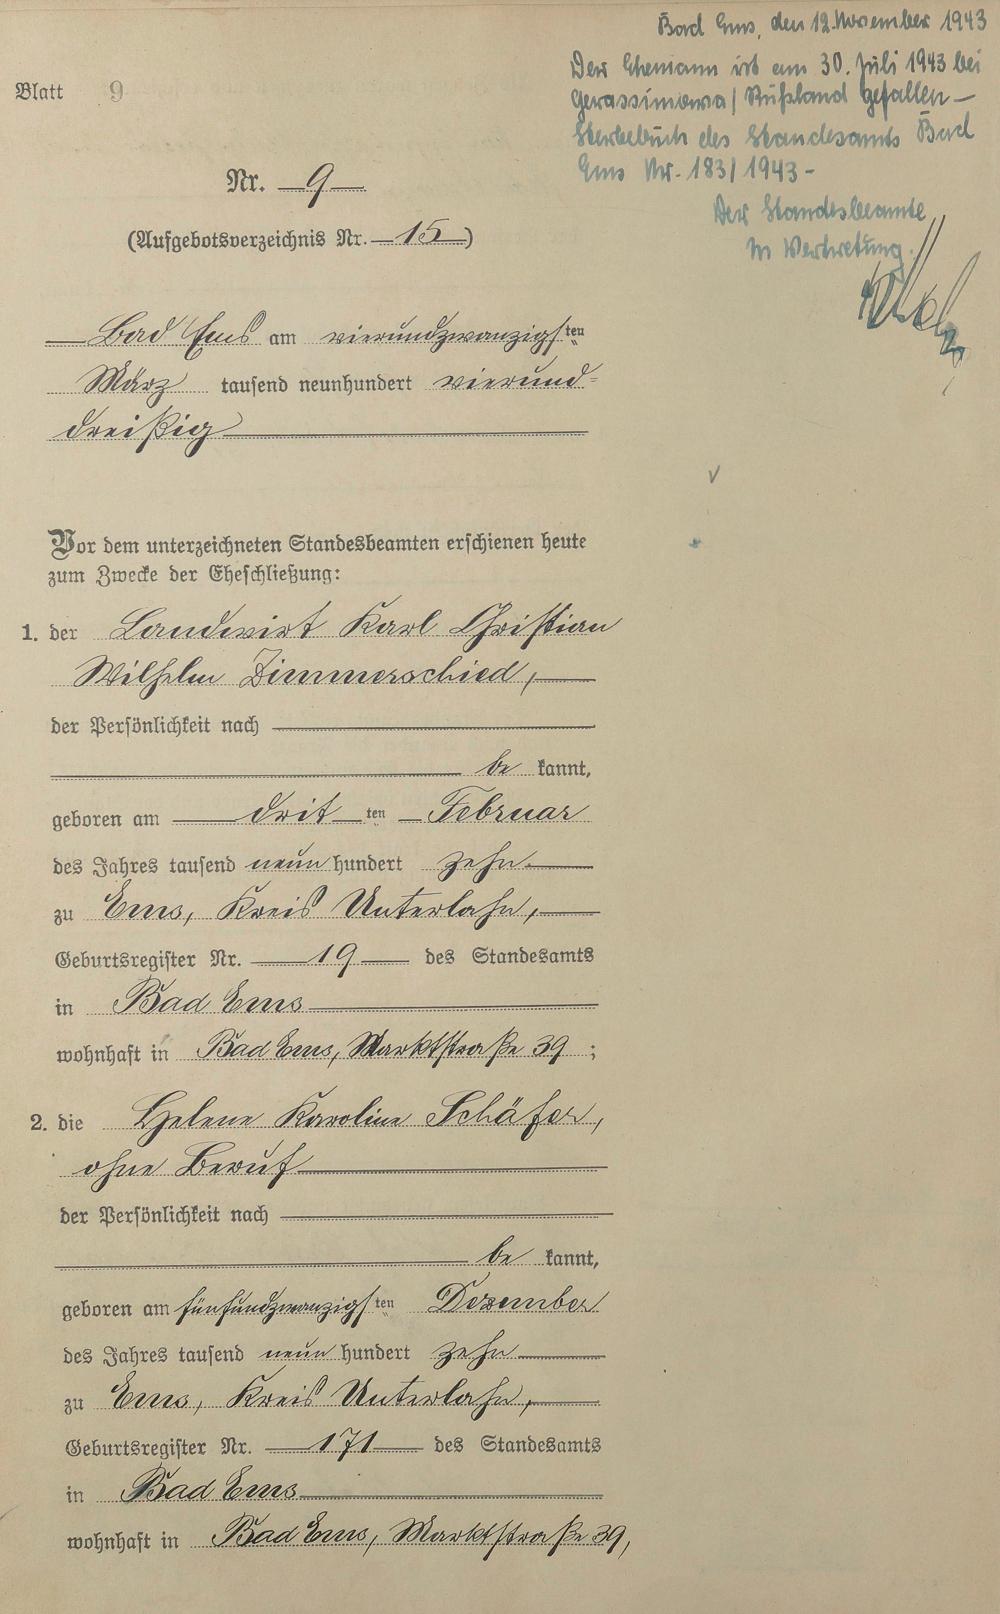 Bad Ems, den 12. November 1943
Der Ehemann ist am 30. Juli 1943 bei
Gerassimowa / Rußland gefallen —
Sterbebuch des Standesamts Bad
Ems Nr. 183/1943 -
Der Standesbeamte
In Vertretung.
Blatt 9
Nr. 9
(Aufgebotsverzeichnis Nr. 15)
Bad Ems am vierundzwanzigsten
März tausend neunhundert vierund-
dreißig
Vor dem unterzeichneten Standesbeamten erschienen heute
zum Zwecke der Eheschließung:
1. der Landwirt Karl Christian
Wilhelm Zimmerschied,
der Persönlichkeit nach
be kannt,
geboren am dritten Februar
des Jahres tausend neun hundert zehn
zu Ems, Kreis Unterlahn,
Geburtsregister Nr. 19 des Standesamts
in Bad Ems
wohnhaft in Bad Ems, Marktstraße 39;
2. die Helene Karoline Schäfer,
ohne Beruf
der Persönlichkeit nach
be kannt,
geboren am fünfundzwanzigsten Dezember
des Jahres tausend neun hundert zehn
zu Ems, Kreis Unterlahn,
Geburtsregister Nr. 171 des Standesamts
in Bad Ems
wohnhaft in Bad Ems, Marktstraße 39,